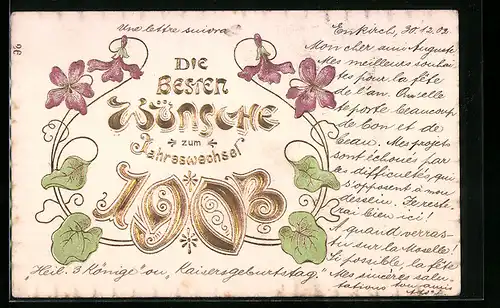 Une lettre suivra
Enkirch, 30.12.02.
96
Die
Besten
Wünsche
zum
Jahreswechsel
1903
Mon cher ami Auguste
Mes meilleurs souhai-
tes pour la fête
de l'an. Qu'elle
te porte beaucoup
de bon et de
beau. Mes projets
sont échoués par
les difficultés qui
s'opposent à mon
dessein. Je reste-
rai bien ici!
A quand verras-
tu sur la Moselle!
Si possible la fête
"Heil. 3 Könige" ou "Kaisersgeburtstag." Mes sincères salu-
tations ton ami